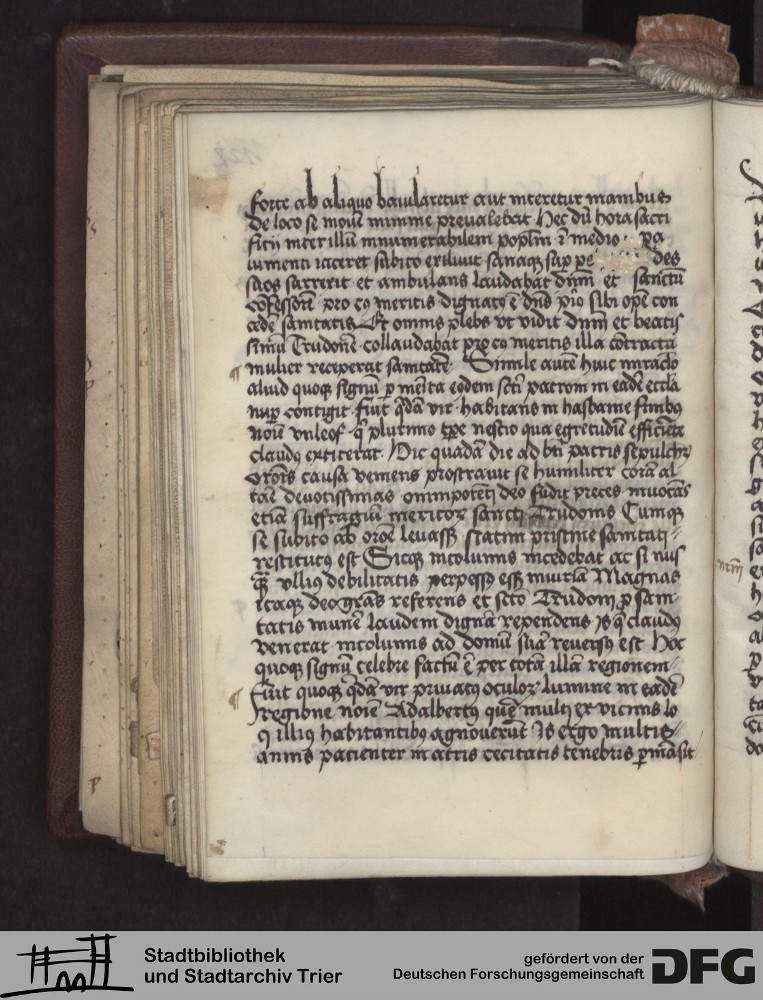 forte ab aliquo baiularetur aut niteretur manibus
de loco se moũe minime preualebat Hec dũ hora sacri
ficij inter illã innumerabilem pop̃lm ĩ medio pa
iumenti iaceret subito exiluit sanaq; sup pe des
suos surrexit et ambulans laudabat dñm et sanctũ
cõfessorẽ pro cꝰ meritis dignatꝰ ẽ dñs pio sibi opẽ con
cedẽ sanitatis Et omnis plebs vt vidit dñm et beatis
simũ Trudonẽ collaudabat pro cꝰ meritis illa cõtracta
mulier receperat sanitatẽ Simile autẽ huic miraclo
aliud quoq; signũ p merita eiusdem scti patroni in eadẽ eccla
nup contigit fuit qdã vir habitans in hasbanie finibꝰ
noĩe vnleof q̃ plurimo tpe nescio qua egretudĩe efficiẽte
claudꝰ extiterat Hic quadã die ad bti patris sepulchr
orõis causa veniens prostrauit se humiliter corã al
tari deuotissimas omnipotẽti deo fudit preces inuocãs
etiã suffragiũ meritor sancti Trudonis Cumq;
se subito ab orõe leuasset statim pristine sanitati
restitutꝰ est Sicq; incolumis incedebat ac si nus
q̃ vllius debilitatis perpessꝰ esset iniuriã Magnas
itaq; deo grãs referens et scto Trudoni p sani
tatis munẽ laudem dignã rependens is q̃ claudꝰ
venerat incolumis ad domũ suã reuersꝰ est Hoc
quoq; signũ celebre factũ ẽ per totã illã regionem
Fuit quoq; qdã vir priuatꝰ oculor lumine in eadẽ
regione noĩe Adalbertꝰ quẽ multi ex vicinis lo
ci illiꝰ habitantibꝰ agnouerũt Is ergo multis
annis patienter in atris cecitatis tenebris pmãsit
Stadtbibliothek
und Stadtarchiv Trier
gefördert von der
Deutschen Forschungsgemeinschaft
DFG